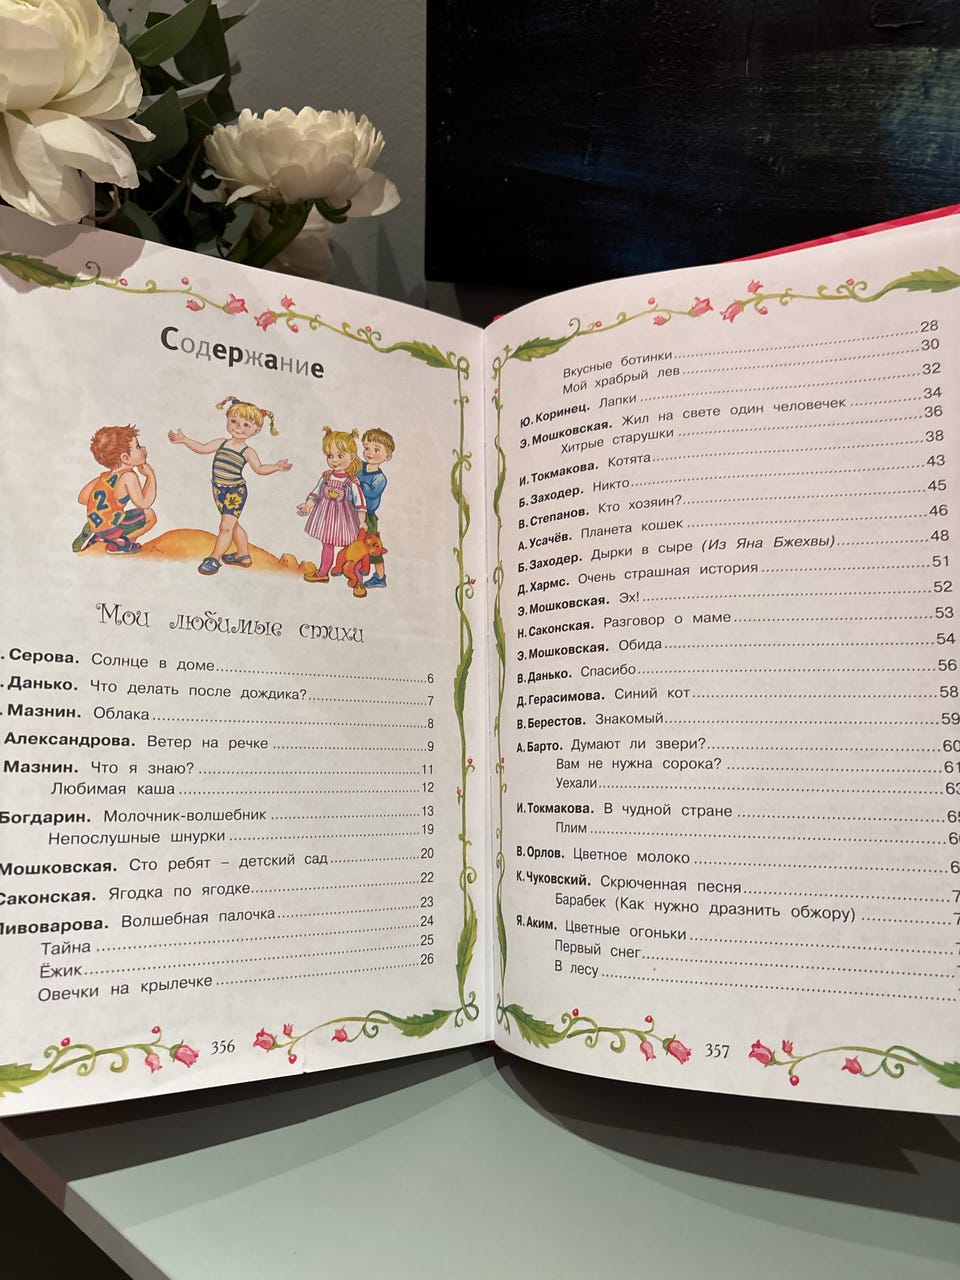 Содержание
Мои любимые стихи
. Серова. Солнце в доме 6
. Данько. Что делать после дождика? 7
. Мазнин. Облака 8
Александрова. Ветер на речке 9
Мазнин. Что я знаю? 11
Любимая каша 12
Богдарин. Молочник-волшебник 13
Непослушные шнурки 19
Мошковская. Сто ребят – детский сад 20
Саконская. Ягодка по ягодке 22
Пивоварова. Волшебная палочка 23
Тайна 24
Ёжик 25
Овечки на крылечке 26
356
Вкусные ботинки 28
Мой храбрый лев 30
Ю.Коринец. Лапки 32
Э.Мошковская. Жил на свете один человечек 34
Хитрые старушки 36
И.Токмакова. Котята 38
Б.Заходер. Никто 43
В.Степанов. Кто хозяин? 45
А.Усачёв. Планета кошек 46
Б.Заходер. Дырки в сыре (Из Яна Бжехвы) 48
Д.Хармс. Очень страшная история 51
Э.Мошковская. Эх! 52
Н.Саконская. Разговор о маме 53
Э.Мошковская. Обида 54
В.Данько. Спасибо 56
Д.Герасимова. Синий кот 58
В.Берестов. Знакомый 59
А.Барто. Думают ли звери? 60
Вам не нужна сорока? 61
Уехали 63
И.Токмакова. В чудной стране
Плим
В.Орлов. Цветное молоко
К.Чуковский. Скрюченная песня
Барабек (Как нужно дразнить обжору)
Я.Аким. Цветные огоньки
Первый снег
В лесу
357